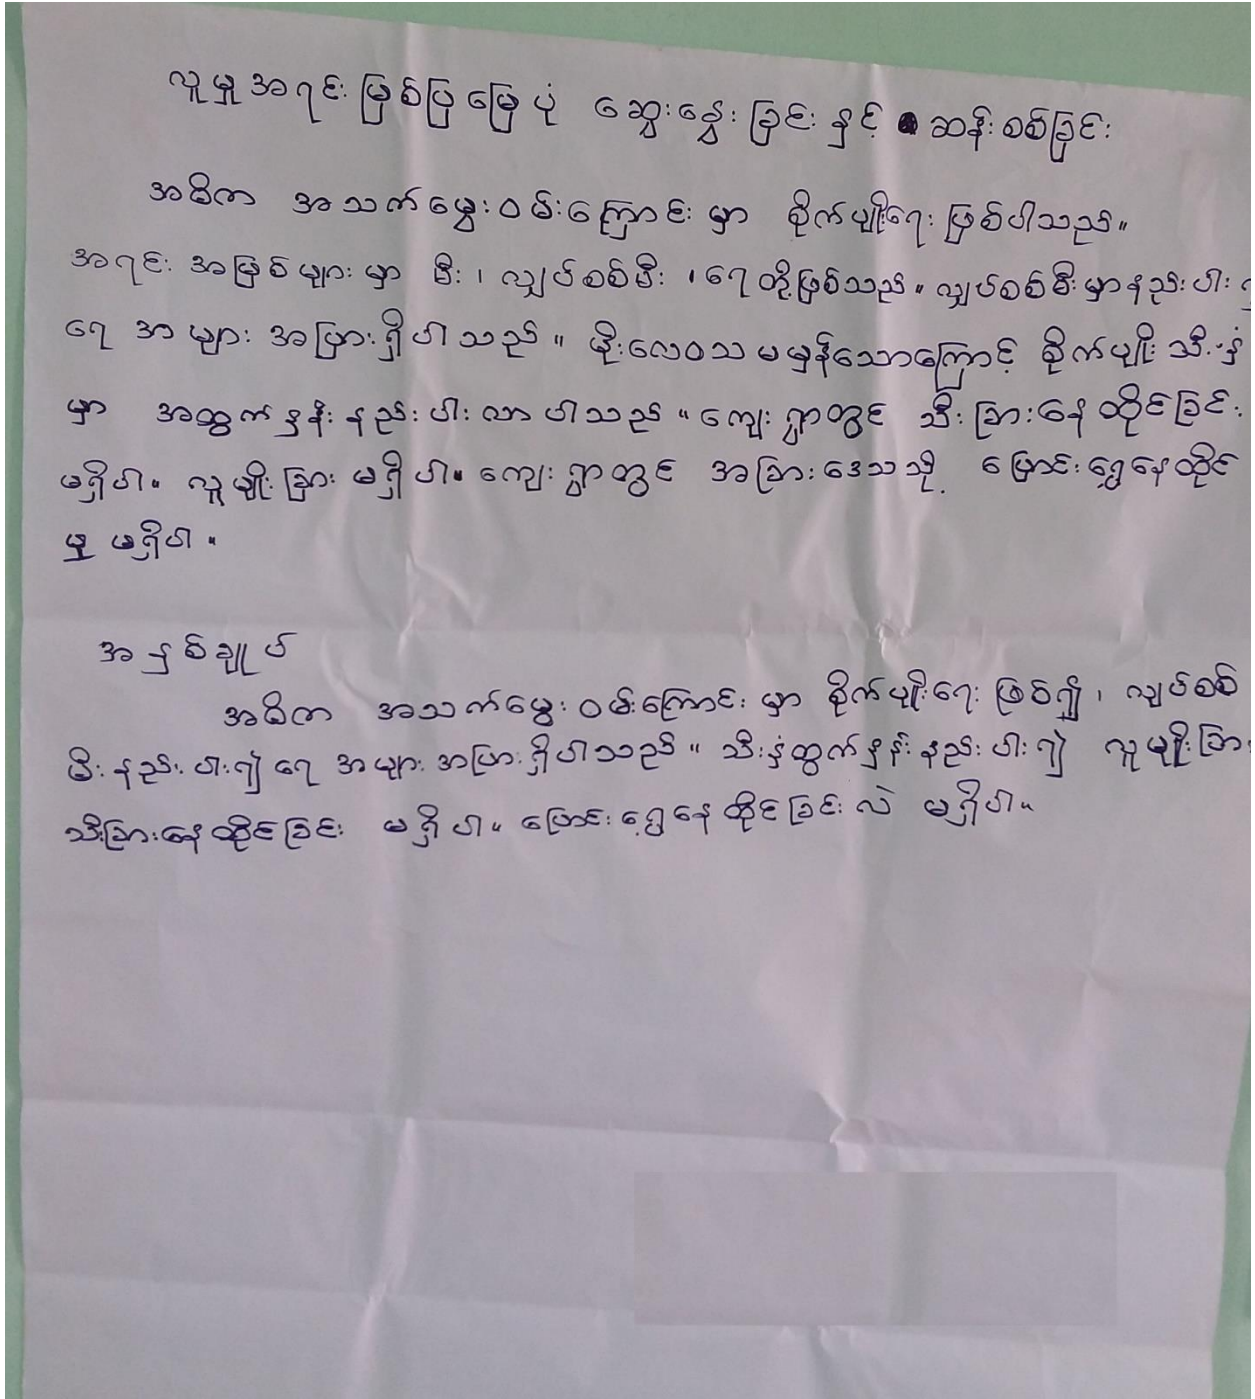 လူမှုအရင်းမြစ်ပြမြေပုံ ဆွေးနွေးခြင်းနှင့် ဆန်းစစ်ခြင်း
အဓိက အသက်မွေးဝမ်းကြောင်းမှာ စိုက်ပျိုးရေးဖြစ်ပါသည်။
အရင်းအမြစ်များမှာ မီး၊ လျှပ်စစ်မီး၊ ရေတို့ဖြစ်သည်။ လျှပ်စစ်မီးမှာနည်းပါး
ရေ အများအပြားရှိပါသည်။ မိုးလေဝသ မမှန်သောကြောင့် စိုက်ပျိုးသီးနှံ
မှာ အထွက်နှုန်းနည်းပါးလာပါသည်။ ကျေးရွာတွင် သီးခြားနေထိုင်ခြင်း
မရှိပါ။ လူမျိုးခြားမရှိပါ။ ကျေးရွာတွင် အခြားဒေသသို့ ပြောင်းရွှေ့နေထိုင်
မှုမရှိပါ။
အနှစ်ချုပ်
အဓိက အသက်မွေးဝမ်းကြောင်းမှာ စိုက်ပျိုးရေးဖြစ်၍၊ လျှပ်စစ်
မီးနည်းပါး၍ ရေ အများအပြားရှိပါသည်။ သီးနှံထွက်နှုန်းနည်းပါး၍ လူမျိုးခြား
သီးခြားနေထိုင်ခြင်း မရှိပါ။ ပြောင်းရွှေ့နေထိုင်ခြင်းလဲ မရှိပါ။